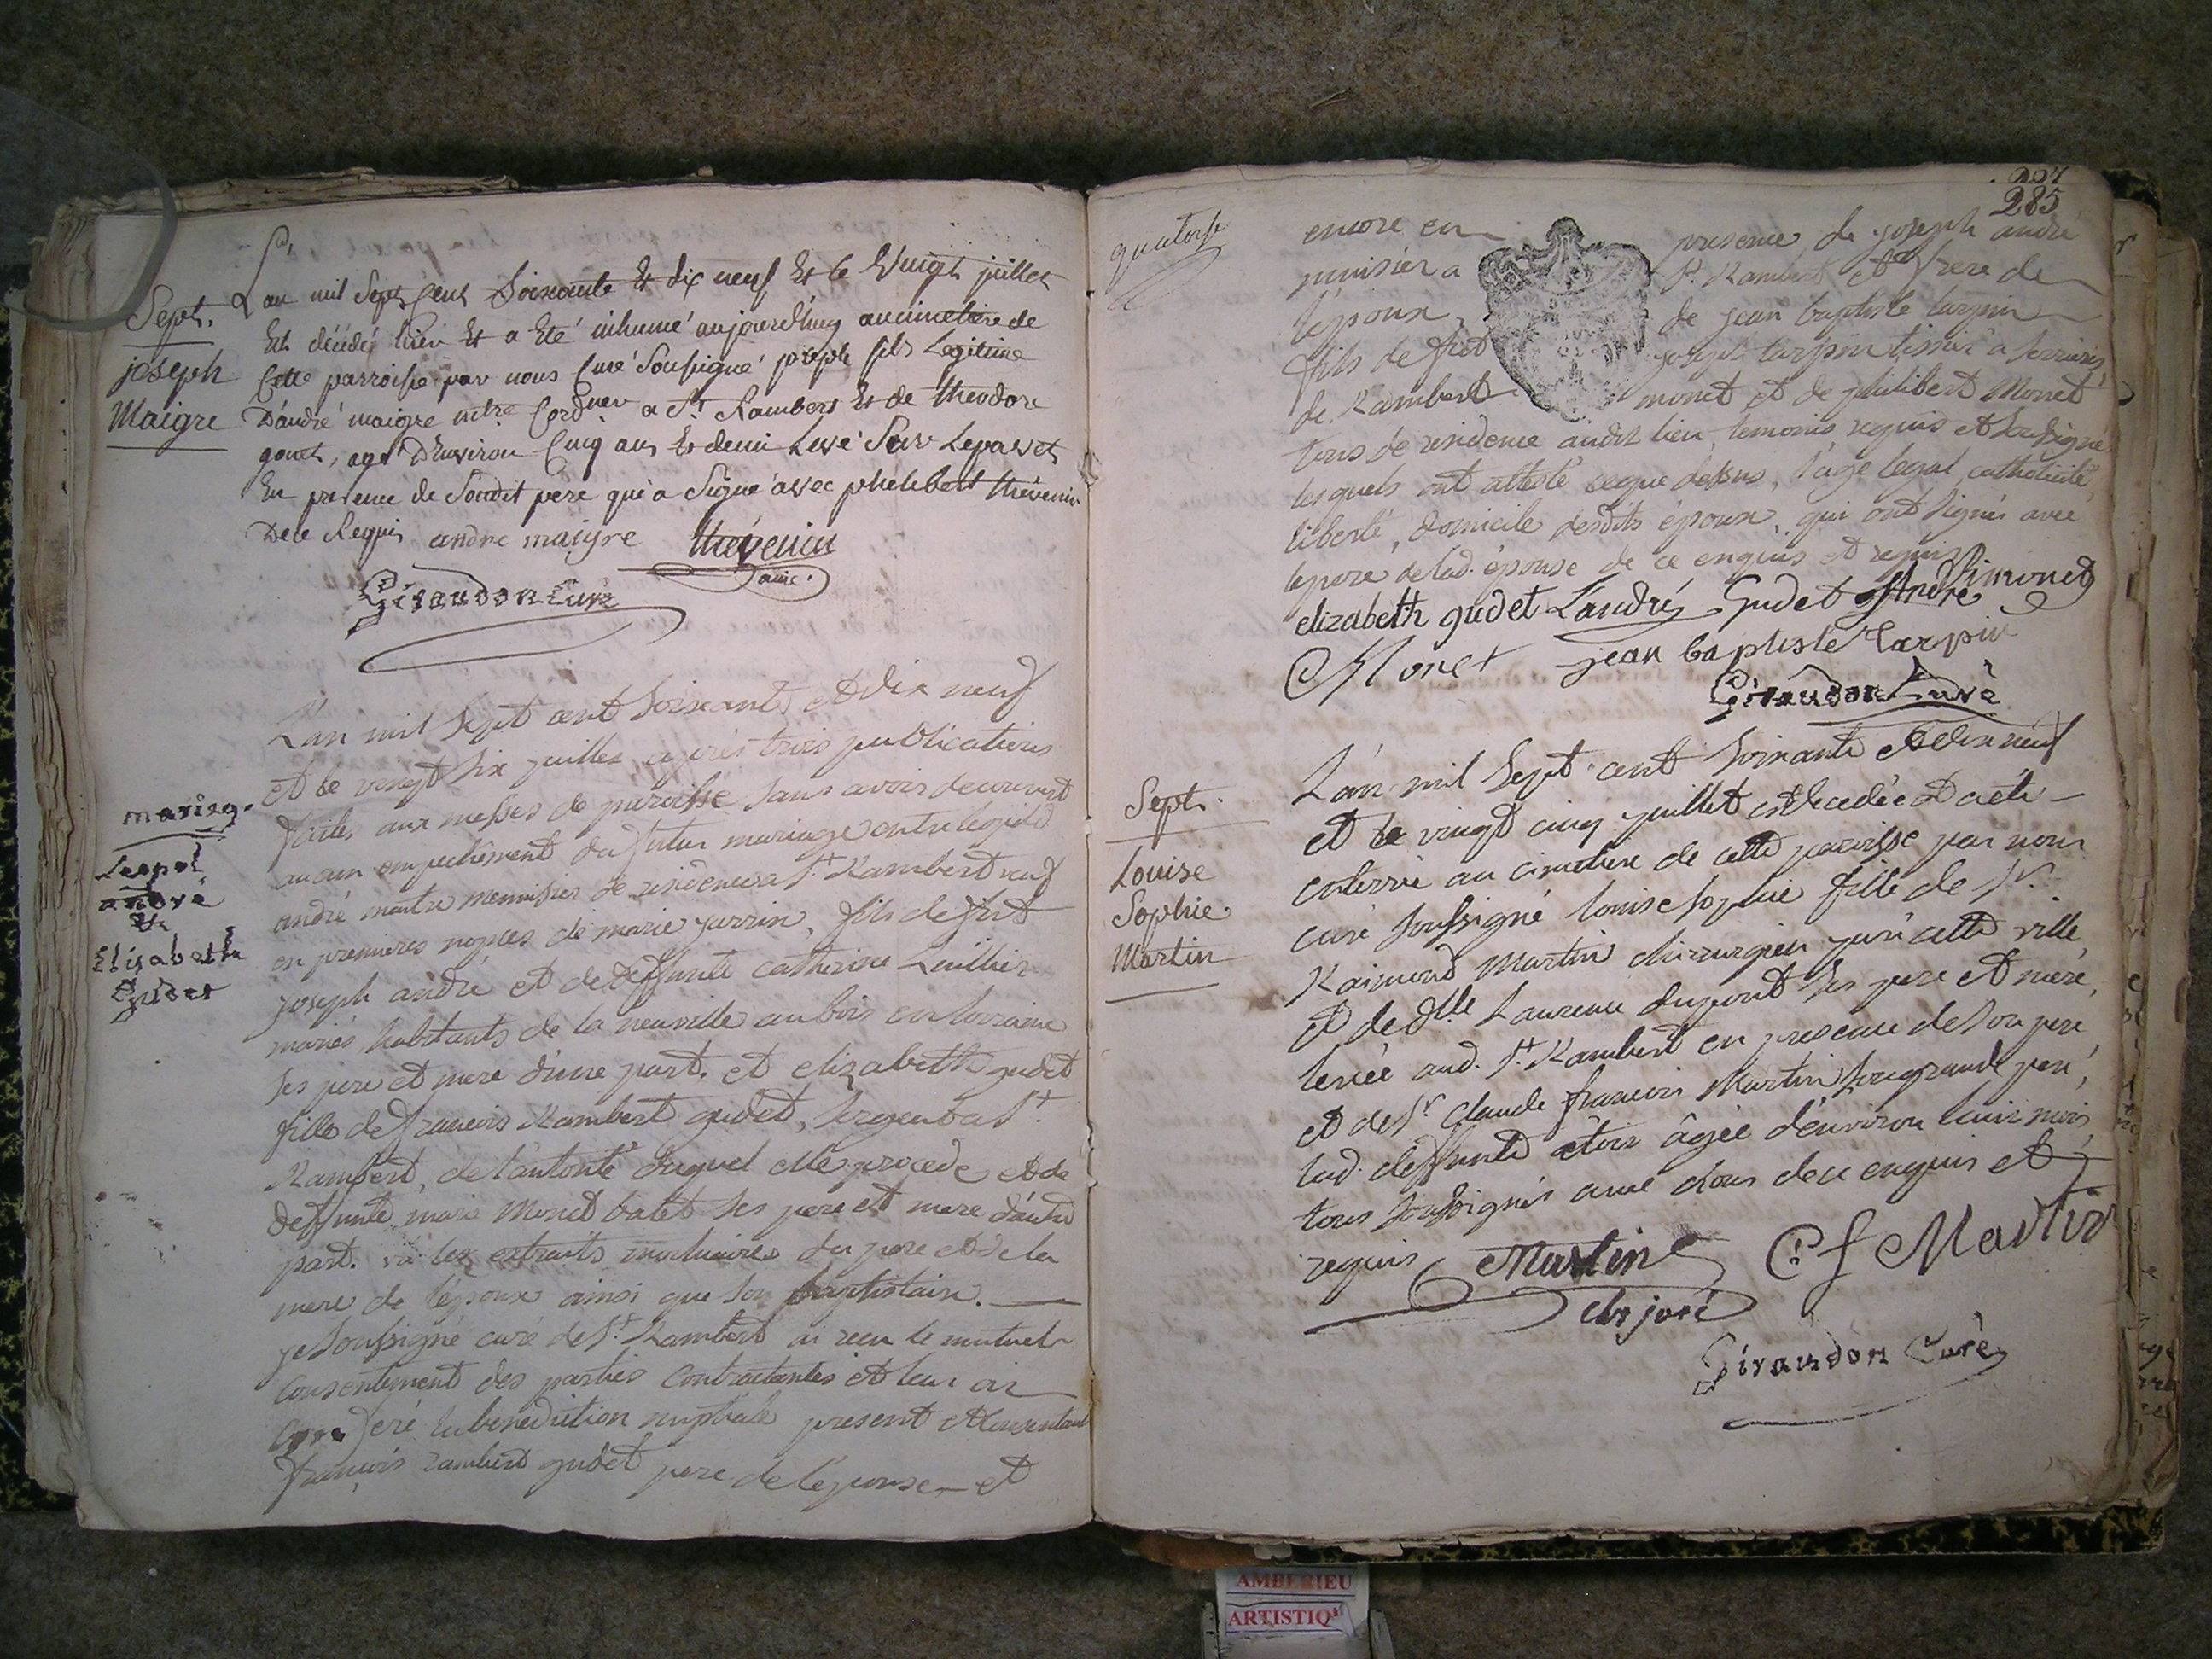 Sept.
joseph
Maigre
L'an mil Sept Cent Soixante Et dix neuf Et le Vingt juillet
Est décédé hier Et a Eté inhumé aujourd'huy au cimetiere de
Cette parroisse par nous Curé Soussigné joseph fils Legitime
D'andré maigre mtre Cordner a St Rambert Et de theodore
gonet, agé D'Environ Cinq ans Et demi Levé Sur Le pavet
En presence de Sondit pere qui a Signé avec philebert thévenin
De ce Requis andre maigre thévenin
ainé.
Giraudon Curé
mariag.
Leopol
andré
Et
Elisabeth
Gudet
L'an mil Sept cent Soixante et dix neuf
et le vingt Six juillet après trois publications
faites aux messes de paroisse Sans avoir decouvert
aucun empechement du futur mariage entre leopold
andré maitre menuisier de residence a St. Rambert veuf
en premieres nopces de marie jarrin, fils de fut
joseph andré et de deffunte catherine Luillier
mariés habitants de la neuville au bois en lorraine
Ses pere et mere d'une part. et elizabeth gudet
fille de francois Rambert gudet, Sergent a St.
Rambert, de l'autorité duquel elle procede et de
deffunte marie Monet batet Ses pere et mere d'autre
part. vu les extraits mortuaires du pere et de la
mere de l'époux ainsi que Son baptistaire.
je Soussigné curé de St. Rambert ai recu le mutuel
Consentement des parties Contractantes et leur ai
Conferé la benediction nuptiale present et
françois rambert gudet pere de l'epouse et
quatorse
207
285
encore en presence de joseph andré
menisier a St. Rambert et frere de
l'époux, de jean baptiste tarpin
fils de fut joseph tarpin tissier a Serrieres,
de Rambert monet et de philibert Monet
tous de residence audit lieu, temoins requis et Soussignés
lesquels ont attesté ce que dessus, l'age legal, catholicité,
liberté, domicile desdits époux, qui ont Signés avec
le pere de lad. épouse de ce enquis et requis
elizabeth gudet L'andré Gudet andre Rimonet
Monet jean baptiste tarpin
Giraudon Curé
Sept.
Louise
Sophie
Martin
L'an mil Sept cent Soixante et dix neuf
et le vingt cinq juillet est decedée et a été
enterrée au cimetiere de cette paroisse par nous
curé Soussigné louise Sophie fille de Sr.
Raimond Martin chirurgien juré cette ville
et de dlle Laurence dupont Ses pere et mere,
levée aud. St. Rambert en presence de Son pere
et de Sr Claude francois Martin Son grand pere,
lad. deffunte etoit âgée d'environ huit mois,
tous Soussignés avec nous de ce enquis et
requis Martin C. f Martin
chr juré
Giraudon Curé
AMBERIEU
ARTISTIQ